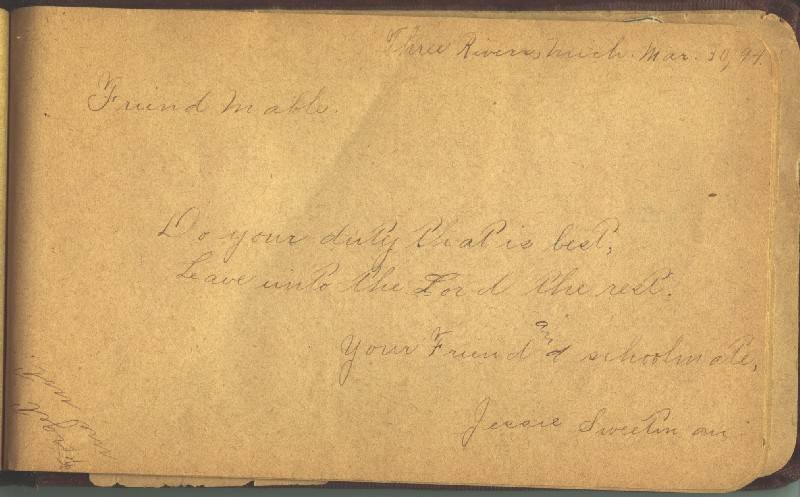 Three Rivers, Mich. Mar. 30, 94.
Friend Mable.
Do your duty that is best,
Leave unto the Lord the rest.
Your Friend and schoolmate,
Jessie Sweetman
Forget
me not.